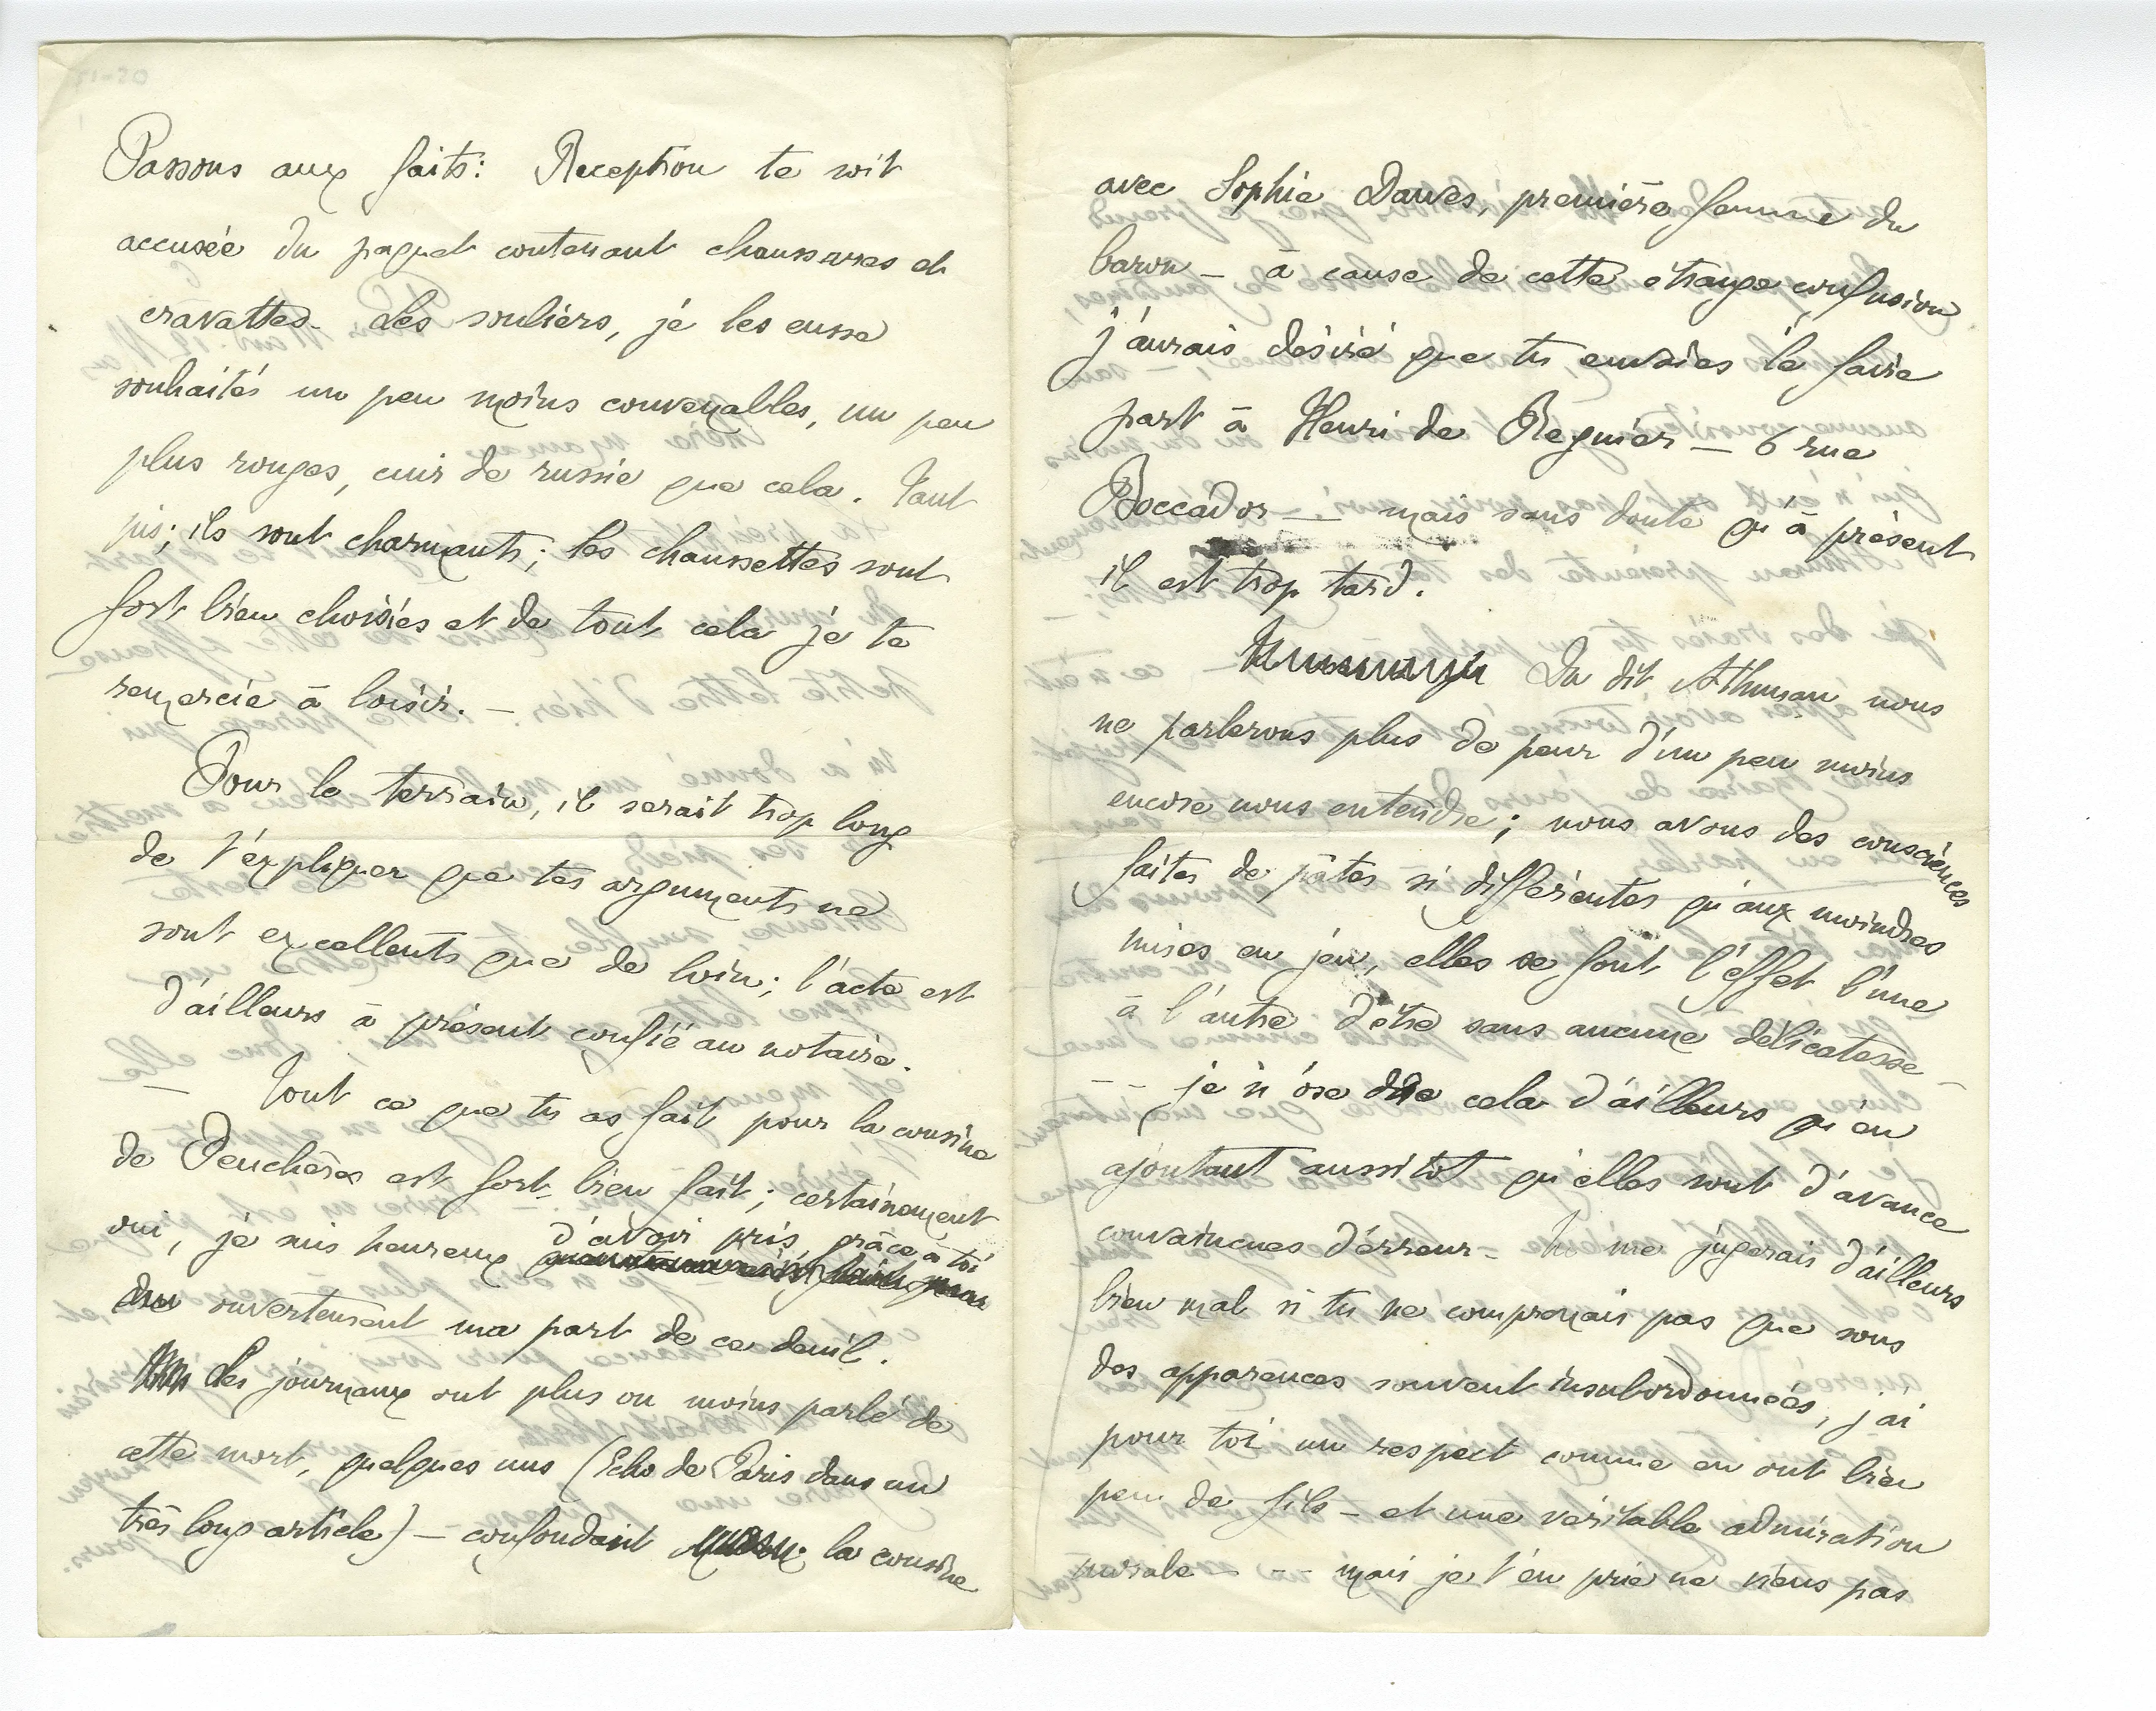 51-20
Passons aux faits: Reception te soit
accusée du paquet contenant chaussures et
cravattes. Les souliers, je les eusse
souhaités un peu moins convenables, un peu
plus rouges, cuir de russie que cela. Tant
pis; ils sont charmants; les chaussettes sont
fort bien choisies et de tout cela je te
remercie à loisir. —
Pour le terrain, il serait trop long
de t'expliquer que tes arguments ne
sont excellents que de loin; l'acte est
d'ailleurs à présent confié au notaire.
— Tout ce que tu as fait pour la cousine
de Feuchères est fort bien fait; certainement
oui, je suis heureux d'avoir pris, grâce à toi
ouvertement ma part de ce deuil.
Les journaux ont plus ou moins parlé de
cette mort, quelques uns (Echo de Paris dans un
très long article) — confondant la cousine
avec Sophie Dawes, première femme du
baron — à cause de cette étrange confusion
j'aurais désiré que tu envoies le faire
part à Henri de Regnier — 6 rue
Boccador — mais sans doute qu'à présent
il est trop tard.
Du dit Athman nous
ne parlerons plus de peur d'un peu moins
encore nous entendre; nous avons des consciences
faites de pâtes si différentes qu'aux moindres
mises en jeu, elles se font l'effet l'une
à l'autre d'être sans aucune délicatesse —
-- je n'ose dire cela d'ailleurs qu'en
ajoutant aussitot qu'elles sont d'avance
convaincues d'erreur — Tu me jugerais d'ailleurs
bien mal si tu ne comprenais pas que sous
des apparences souvent insubordonnées, j'ai
pour toi un respect comme en ont bien
peu de fils — et une véritable admiration
morale - -- mais je t'en prie ne viens pas